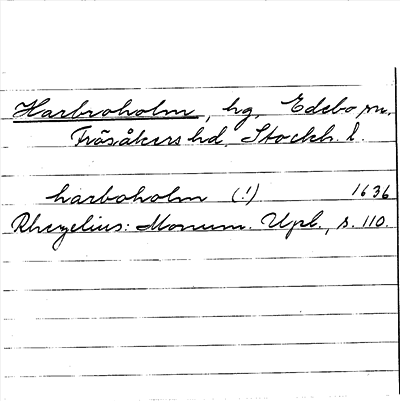 Harbroholm, hg, Edebo sn.
Frösåkers hd, Stockh. l.
harboholm (!) 1636
Rhezelius: Monum. Upl., s. 110.